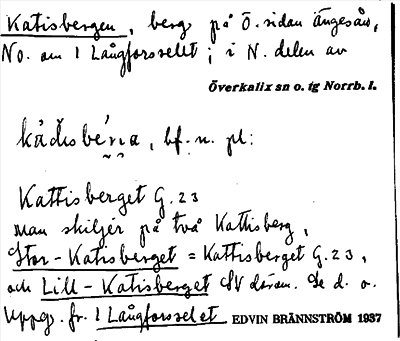 Katisbergen, berg på Ö. sidan ängesån,
NO. om 1 Långforsselet; i N. delen av
Överkalix sn o. tg Norrb. l.
bf. n. pl:
Kattisberget G. 23
Man skiljer på två Kattisberg,
Stor-Katisberget = Kattisberget G. 23,
och Lill-Katisberget SV därom. Se d. o.
Uppg. fr. 1 Långforsselet EDVIN BRÄNNSTRÖM 1937